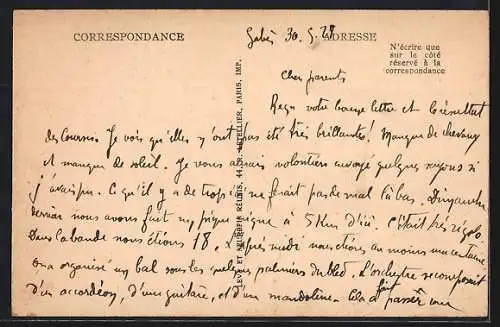 CORRESPONDANCE
ADRESSE
N'écrire que
sur le côté
réservé à la
correspondance
LÉVY ET NEURDEIN RÉUNIS, 44, RUE LETELLIER, PARIS, IMP.
Gabès 30. 5. 28
Chers parents
Reçu votre bonne lettre et le résultat
des courses. Je vois qu'elles n'ont pas été très brillantes! Manque de chevaux
et manque de soleil. Je vous aurais volontiers envoyé quelques rayons si
j'avais pu. Ce qu'il y a de trop ici ne ferait pas de mal là bas. Dimanche
dernier nous avons fait un pique nique à 5 Km d'ici. C'était très rigolo
Dans la bande nous étions 18. L'après midi nous étions au moins une centaine
on a organisé un bal sous les quelques palmiers du bled. L'orchestre se composait
d'un accordéon, d'une guitare, et d'un mandoline. Cela fait passer une